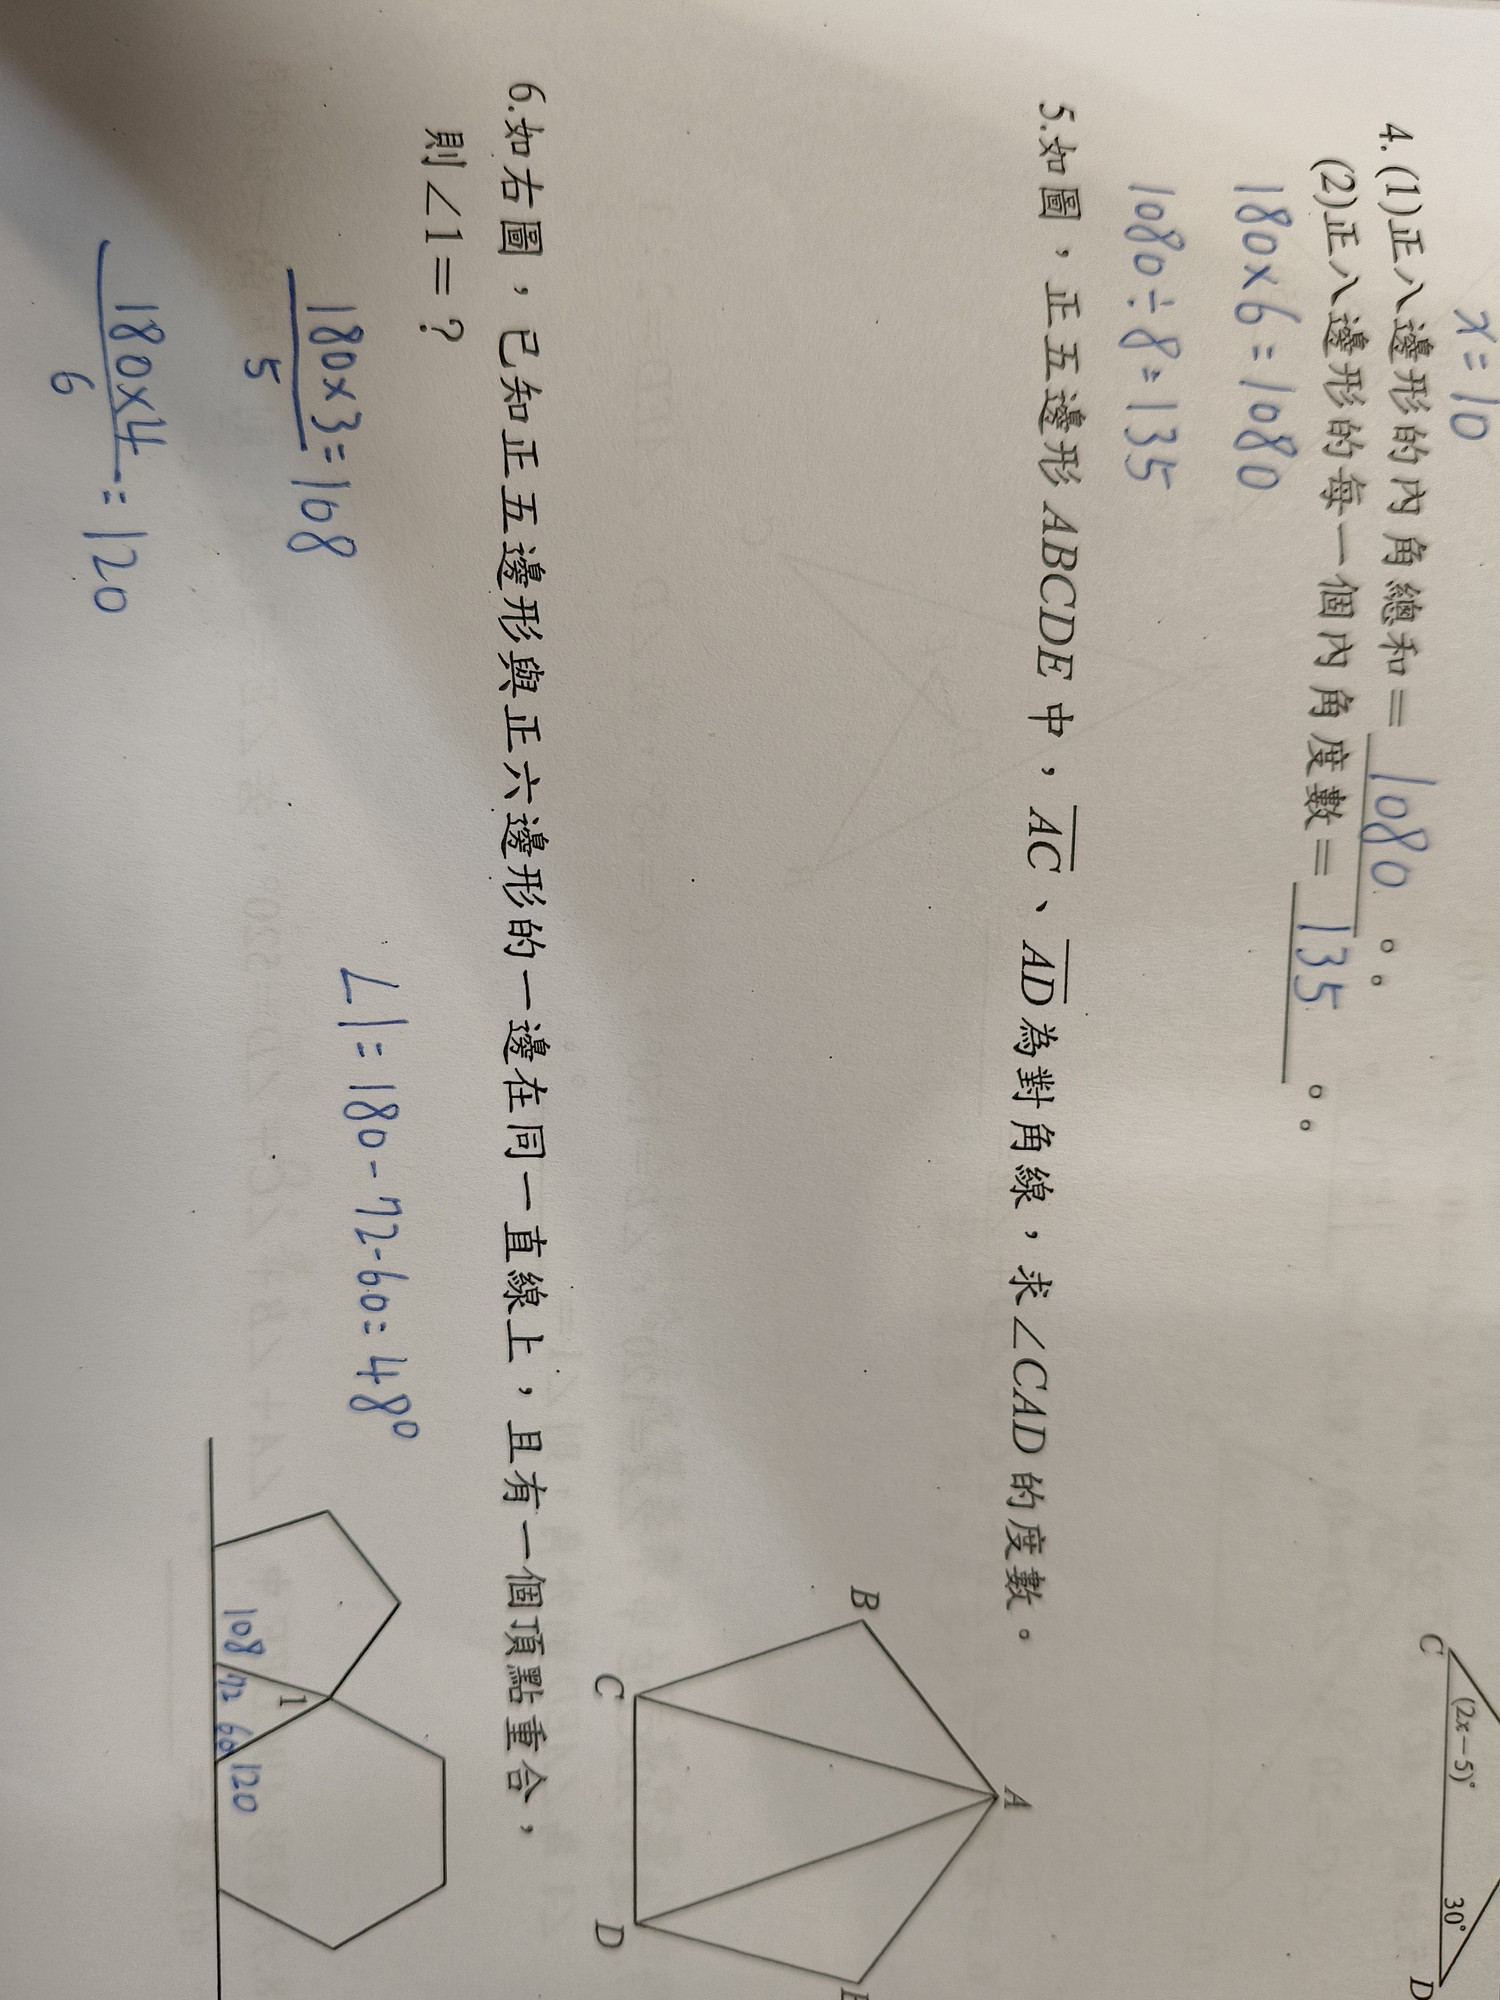 x=10
C
(2x-5)°
30°
D
4.(1)正八邊形的內角總和= 1080 。。
(2)正八邊形的每一個內角度數= 135 。。
180×6=1080
1080÷8=135
5.如圖，正五邊形 ABCDE 中，AC、AD為對角線，求∠CAD 的度數。
A
B
C
D
6.如右圖，已知正五邊形與正六邊形的一邊在同一直線上，且有一個頂點重合，
則∠1=？
180×3=108
5
180×4=120
6
∠1=180-72-60=48°
1
108 72 60 120